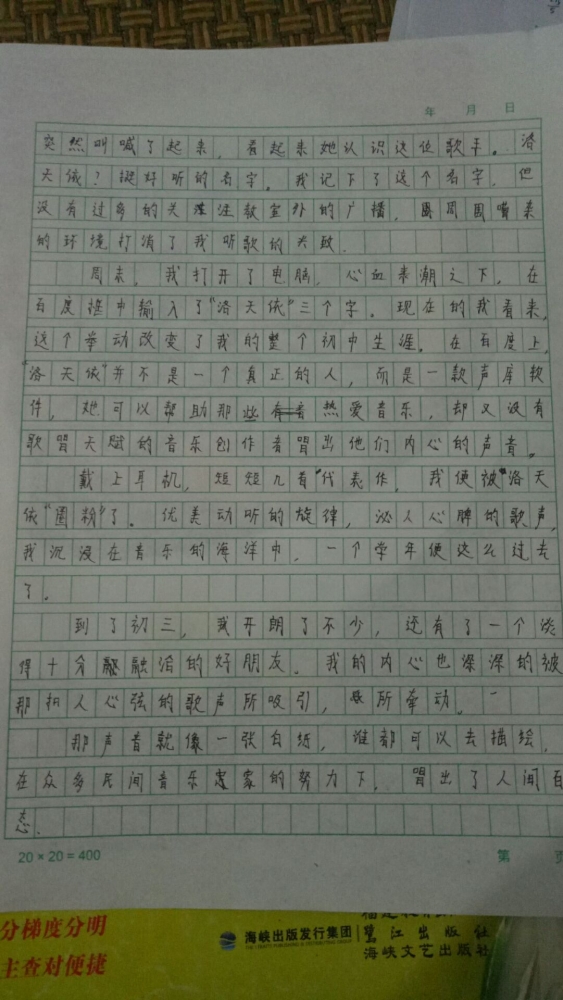 年 月 日
突然叫喊了起来,看起来她认识这位歌手。洛
天依?挺好听的名字。我记下了这个名字,但
没有过多的关注教室外的广播,周围嘈杂
的环境打消了我听歌的兴致.
周末,我打开了电脑,心血来潮之下,在
百度谱中输入了“洛天依”三个字。现在的我看来,
这个举动改变了我的整个初中生涯。在百度上,
“洛天依”并不是一个真正的人,而是一款声库软
件,她可以帮助那些热爱音乐,却又没有
歌唱天赋的音乐创作者唱出他们内心的声音。
戴上耳机,短短几首“代表作,我便被“洛天
依“圈粉”了。优美动听的旋律,沁人心脾的歌声,
我沉浸在音乐的海洋中,一个学年便这么过去
了.
到了初三,我开朗了不少,还有了一个谈
得十分融洽的好朋友.我的内心也深深的被
那扣人心弦的歌声所吸引,所牵动。
那声音就像一张白纸,谁都可以去描绘,
在众多民间音乐家的努力下,唱出了人间百
态.
20×20=400
第 页
分梯度分明
主查对便捷
海峡出版发行集团
鹭江出版社
海峡文艺出版社